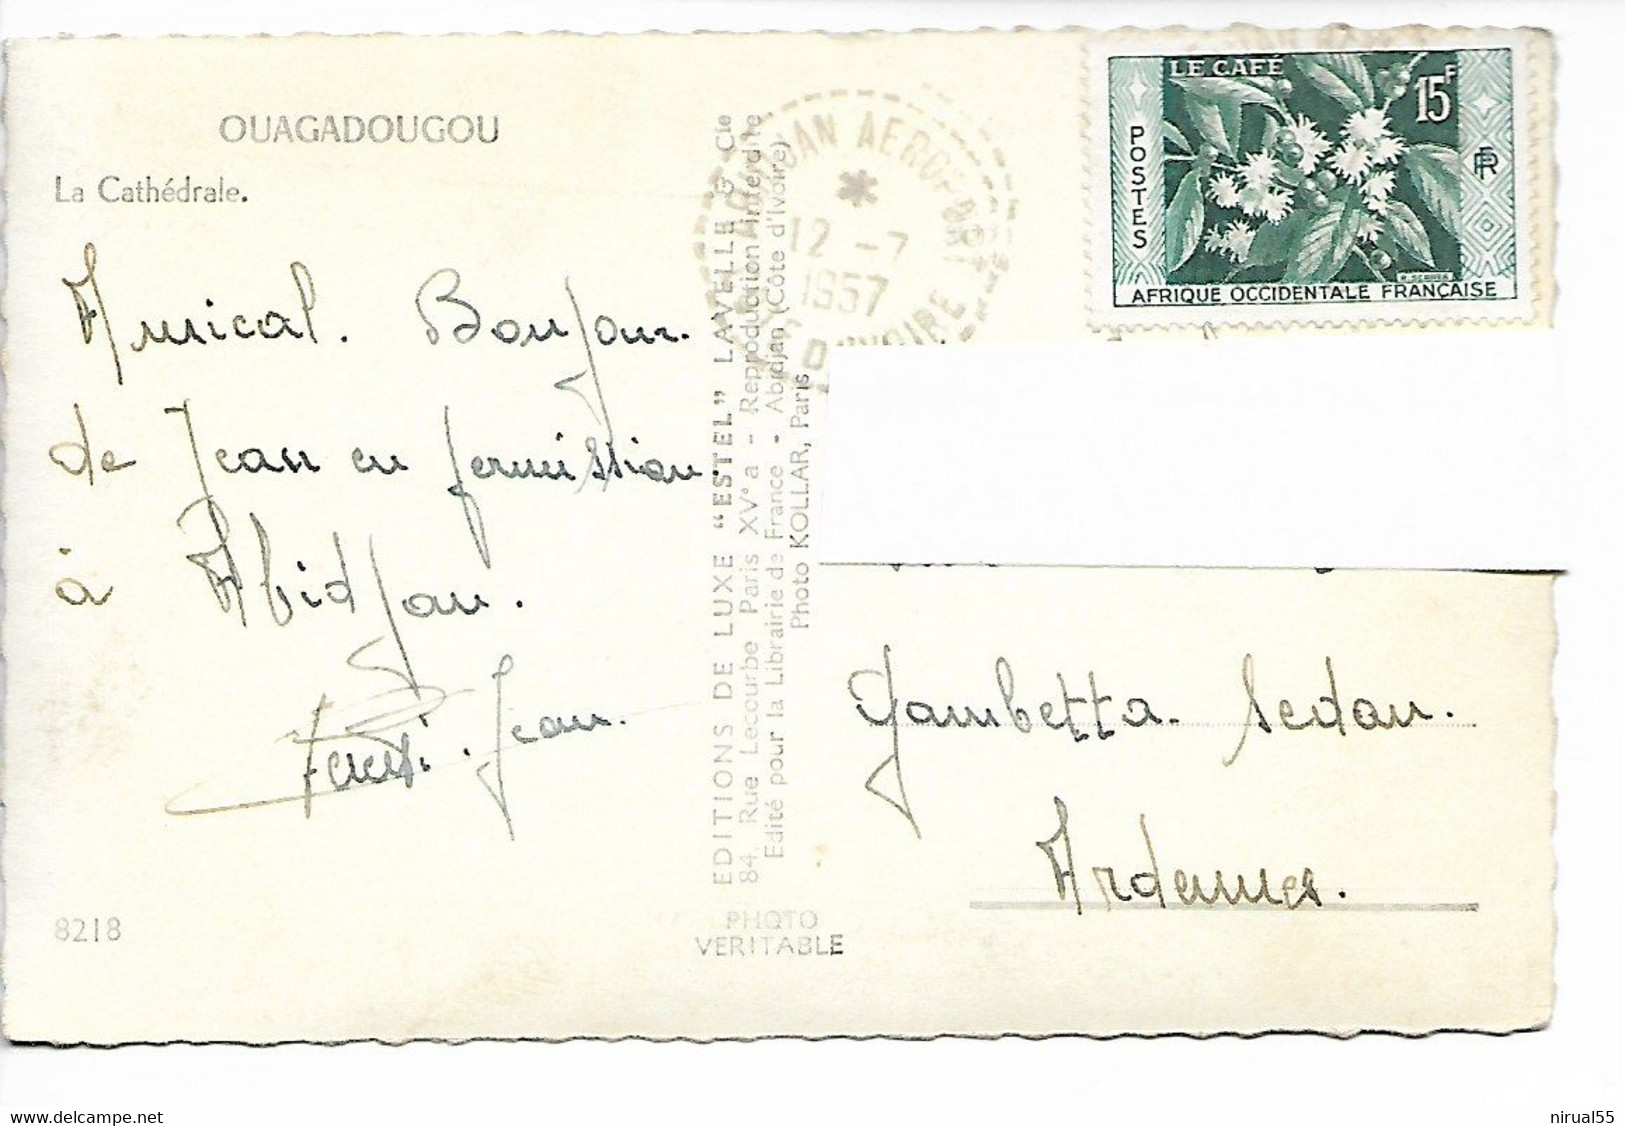 OUAGADOUGOU
La Cathédrale.
Amical. Bonjour.
de Jean en permission.
à Abidjan.
Jean.
8218
EDITIONS DE LUXE "ESTEL" LAVELLE & Cie
84, Rue Lecourbe Paris XVe a - Reproduction interdite
Edité pour la Librairie de France - Abidjan (Côte d'Ivoire)
Photo KOLLAR, Paris
PHOTO
VERITABLE
ABIDJAN AEROPORT
*
12 -7
1957
D'IVOIRE
LE CAFÉ
15F
POSTES
RF
AFRIQUE OCCIDENTALE FRANÇAISE
Gambetta. Sedan.
Ardennes.
delcampe.net
nirual55